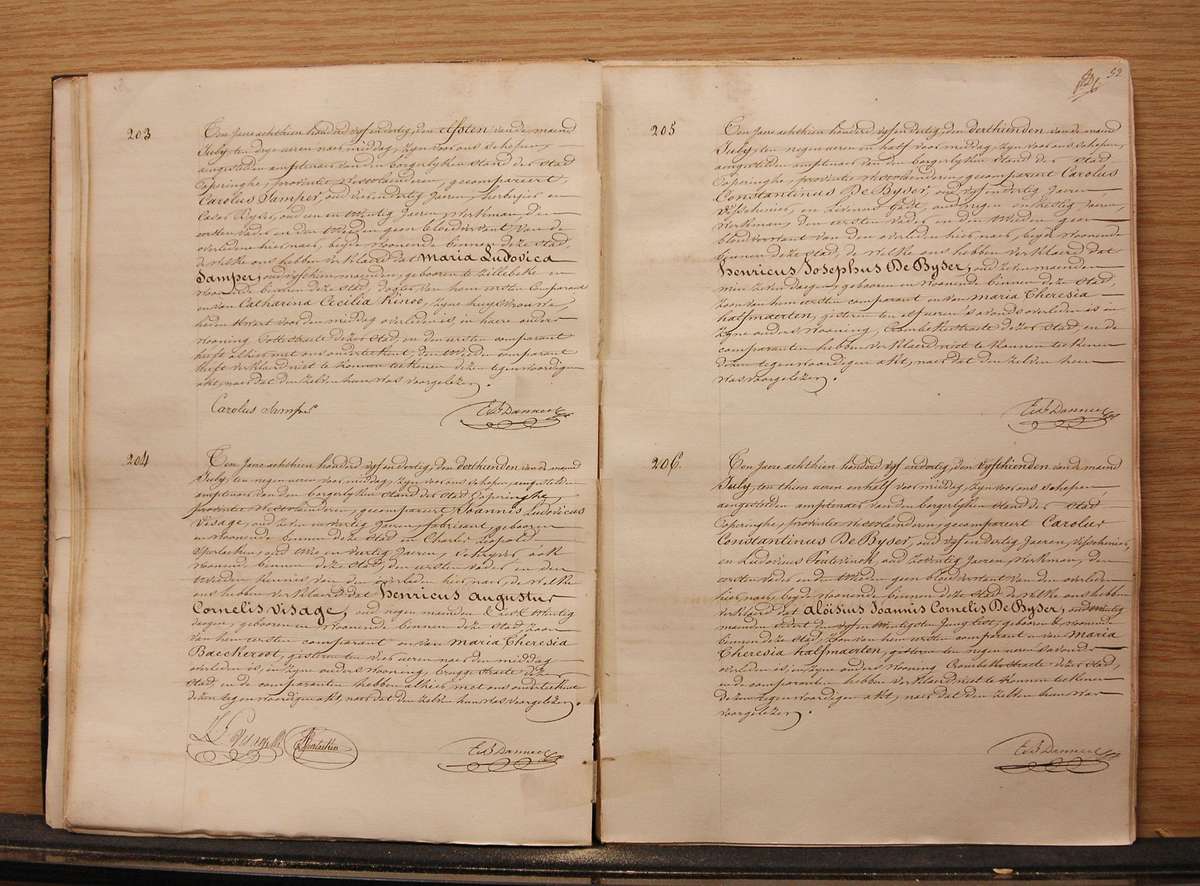 203
Ten Jaere achthien honderd vyf en dertig, den elfsten van de maend
July, ten dry uren naer middag, zyn voor ons schepen,
aengestelden amptenaer van den borgerlyken stand der stad
Poperinghe, provintie Westvlanderen, gecompareert,
Carolus Samper, oud en dertig Jaeren, herbergier en
oud een en twintig Jaeren, Werkman, den
eersten vader en den tweeden geen bloedverwant van de
overledene hier naer, beyde woonende binnen deze stad,
de welke ons hebben verklaerd dat Maria Ludovica
Samper, oud vyfthien maenden, geboren te Zillebeke en
woonende binnen deze stad, dogter van hem eersten comparant
en van Catharina Cecilia Kinoo, zyne huysvrouwe,
heden voor den middag overleden is, in haere ouders
wooning straete dezer stad, en den eersten comparant
heeft alhier met ons onderteekent, den tweeden comparant
heeft verklaerd niet te konnen teekenen dezen tegenwoordigen
akt, naer dat den zelven hun was voorgelezen.
Carolus Samper
204
Ten Jaere achthien honderd vyf en dertig, den derthienden van de maend
July, ten negen uren voor middag, zyn voor ons schepen, aengestelden
amptenaer van den borgerlyken stand der stad Poperinghe,
provintie Westvlanderen, gecompareert Joannes Ludovicus
Visage, oud en veertig Jaeren, fabricant, geboren
en woonende binnen deze stad en Charles Leopold
oud en veertig Jaeren, ook
woonende binnen deze stad, den eersten vader en den
tweeden kennis van den overleden hier naer, de welke
ons hebben verklaerd dat Henricus Augustus
Cornelis Visage, oud negen maenden en twintig
dagen, geboren en woonende binnen deze stad, zoon
van hem eersten comparant en van Maria Theresia
Baeckeroot, gisteren ten vier uren naer den middag
overleden is, in zyne ouders wooning, Brugge straete dezer
stad en de comparanten hebben alhier met ons onderteekent
dezen tegenwoordigen akt, naer dat den zelven hun was voorgelezen.
52
205
Ten Jaere achthien honderd vyf en dertig, den derthienden van de maend
July, ten negen uren en half voor middag, zyn voor ons schepen,
aengestelden amptenaer van den borgerlyken stand der stad
Poperinghe, provintie Westvlanderen, gecompareert Carolus
Constantinus De Byser, oud vyf en dertig Jaeren
en Lievenus oud negen en Jaeren,
Werkman, den eersten vader, en den tweeden geen
bloedverwant van den overleden hier naer, beyde woonende
binnen deze stad, de welke ons hebben verklaerd dat
Henricus Josephus De Byser, oud maenden
min zeven dagen, geboren en woonende binnen deze stad,
zoon van hem eersten comparant en van Maria Theresia
Halfmaerten, gisteren ten elf uren s'avonds overleden is in
zyne ouders wooning, straete dezer stad, en de
comparanten hebben verklaerd niet te konnen teekenen
dezen tegenwoordigen akt, naer dat den zelven hun
was voorgelezen.
206.
Ten Jaere achthien honderd vyf en dertig, den vyfthienden van de maend
July, ten thien uren en half voor middag, zyn voor ons schepen,
aengestelden amptenaer van den borgerlyken stand der stad
Poperinghe, provintie Westvlanderen, gecompareert Carolus
Constantinus De Byser, oud vyf en dertig Jaeren,
en Ludovicus oud zeventig Jaeren, Werkman, den
eersten vader en den tweeden geen bloedverwant van den overleden
hier naer, beyde woonende binnen deze stad de welke ons hebben
verklaerd dat Aloïsius Joannis Cornelis De Byser, oud
maenden geboren en woonende
binnen deze stad, zoon van hem eersten comparant en van Maria
Theresia Halfmaerten, gisteren ten negen uren s'avonds
overleden is, in zyne ouders wooning straete dezer stad,
en de comparanten hebben verklaerd niet te konnen teekenen
dezen tegenwoordigen akt, naer dat den zelven hun was
voorgelezen.